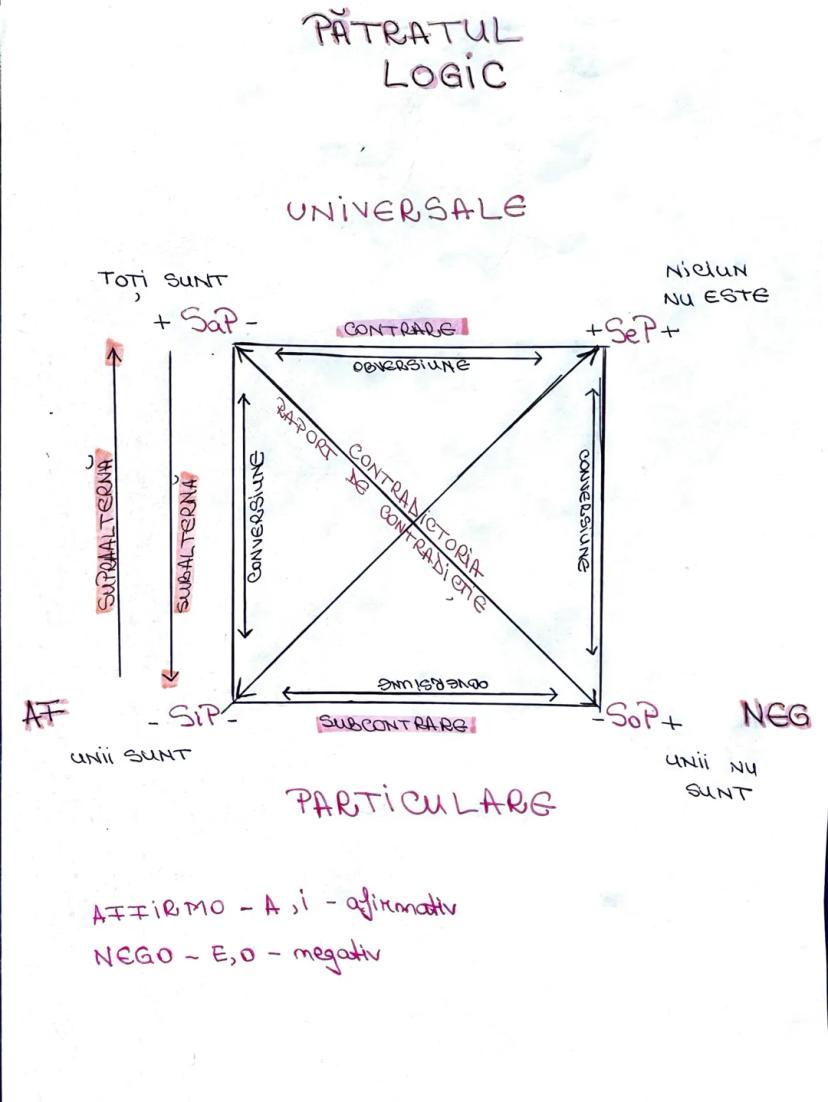 PĂTRATUL
LOGIC
UNIVERSALE
TOȚI SUNT
NICIUN
NU ESTE
+ SaP -
CONTRARE
+SeP+
OBVERSIUNE
SUPRAALTERNĂ
SUBALTERNĂ
CONVERSIUNE
CONTRADICTORIA
RAPORT DE CONTRADICȚIE
CONVERSIUNE
OBVERSIUNE
AF
- SiP-
SUBCONTRARE
-SoP+
NEG
UNII SUNT
UNII NU
SUNT
PARTICULARE
AFFIRMO - A,i - afirmativ
NEGO - E,O - negativ